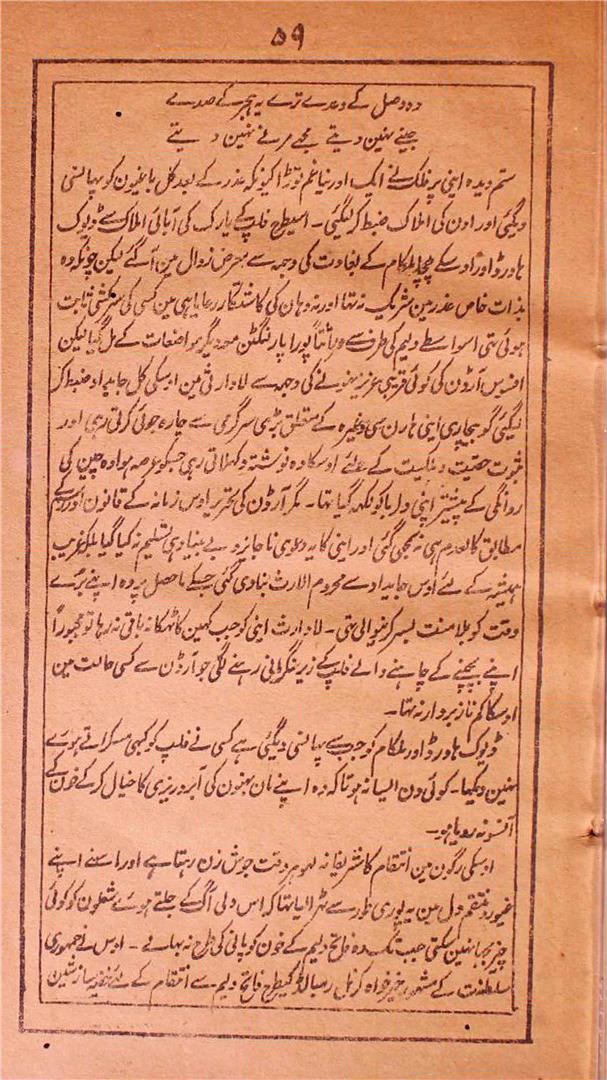 ۵۹
وہ وصل کے وعدے ترے یہ ہجر کے صدمے
جینے نہین دیتے مجھے مرنے نہین دیتے
ستم دیدہ اینی پر فلک نے ایک اور نیا غم توڑا کیونکہ غدر کے بعد کل باغیون کو پھانسی
دیگئی اور اون کی املاک ضبط کرلیگئی ۔ اسیطرح فلپ کے پارک کی آبائی املاک سے ڈیوک
ہاورڈ اور اوسکے چچا بلکام کے بغاوت کی وجہ سے معرض زوال مین آگئے لیکن چونکہ وہ
بذات خاص غدر مین شریک نہ تہا اور نہ وہان کی کاشتکار رعایا ہی مین کسی کی سرکشی ثابت
ہوئی تہی اسواسطے ولیم کی طرف سے پورا پارلنگٹن معہ دیگر مواضعات کے مل گیا لیکن
افسوس آرڈن کی کوئی قریبی عزیز نہونے کی وجہ سے لاوارثی مین اوسکی کل جایداد ضبط کر
لیگئی گو بیچاری اینی ہارن سی وغیرہ کے متعلق بڑی سرگرمی سے چارہ جوئی کرتی رہی اور
ثبوت حقیت و ملکیت کے لئے اوسکا وہ نوشتہ دکہلاتی رہی جسکو عرصہ ہوا وہ چین کی
روانگی کے پیشتر اپنی دلربا کو لکہہ گیا تہا ۔ مگر آرڈن کی تحریر اوس زمانہ کے قانون اور رسم
مطابق کالعدم ہی نہ سمجہی گئی اور اینی کا یہ دعوی ناجایز و بے بنیاد ہی تسلیم نہ کیا گیا بلکہ غریب
ہمیشہ کے لئے اوس جایداد سے محروم الارث بنادی گئی جسکے ماحصل پر وہ اپنے بُرے
وقت کو بلا منت بسر کرنیوالی تہی ۔ لاوارث اینی کو جب کہین کا ٹھکانہ باقی نہ رہا تو مجبوراً
اپنے بچپنے کے چاہنے والے فلپ کے زیر نگرانی رہنے لگی جو آرڈن سے کسی حالت مین
اوسکا کم ناز بردار نہ تہا ۔
ڈیوک ہاورڈ اور بلکام کو جب سے پھانسی دیگئی ہے کسی نے فلپ کو کبھی مسکراتے ہوئے
نہین دیکہا ۔ کوئی دن ایسا نہ ہوتا کہ وہ اپنے مان بہنون کی آبرو ریزی کا خیال کرکے خون کے
آنسو نہ رویا ہو ۔
اوسکی رگون مین انتقام کا شریفانہ لہو ہر وقت جوش زن رہتا ہے اور اسنے اپنے
غیور و منتقم دل مین یہ پوری طور سے ٹہرا لیا تہا کہ اس دلی آگ کے جلتے ہوئے شعلون کو کوئی
چیز بجہا نہین سکتی جب تک وہ فاتح ولیم کے خون کو پانی کی طرح نہ بہائے ۔ اوس نے جمہوری
سلطنت کے مشہور خیر خواہ کرنل رمبالڈ کیطرح فاتح ولیم سے انتقام کے لئے خفیہ سازشین